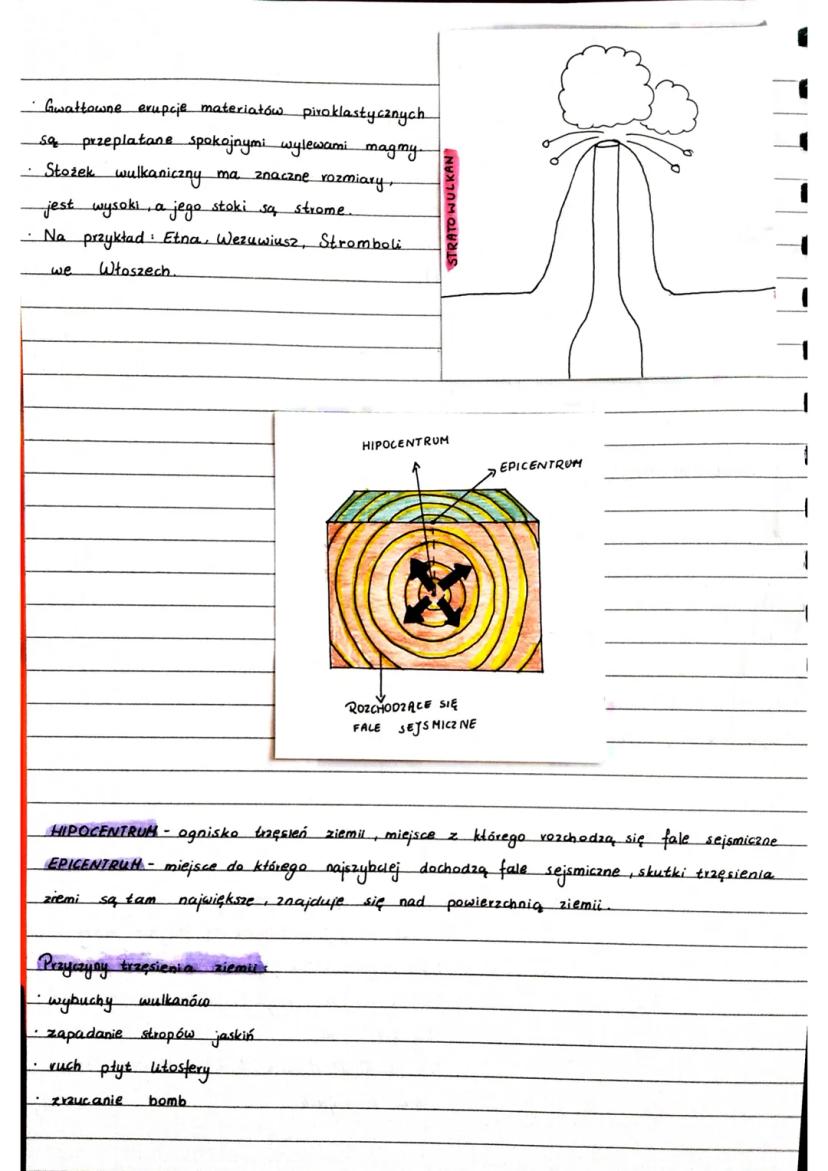 · Gwałtowne erupcje materiałów piroklastycznych
są przeplatane spokojnymi wylewami magmy.
· Stożek wulkaniczny ma znaczne rozmiary,
jest wysoki, a jego stoki są strome.
· Na przykład: Etna, Wezuwiusz, Stromboli
we Włoszech.
STRATOWULKAN
HIPOCENTRUM
EPICENTRUM
ROZCHODZĄCE SIĘ
FALE SEJSMICZNE
HIPOCENTRUM - ognisko trzęsień ziemii, miejsce z którego rozchodzą się fale sejsmiczne
EPICENTRUM - miejsce do którego najszybciej dochodzą fale sejsmiczne, skutki trzęsienia
ziemi są tam największe, znajduje się nad powierzchnią ziemii.
Przyczyny trzęsienia ziemii:
· wybuchy wulkanów
· zapadanie stropów jaskiń
· ruch płyt litosfery
· zrzucanie bomb